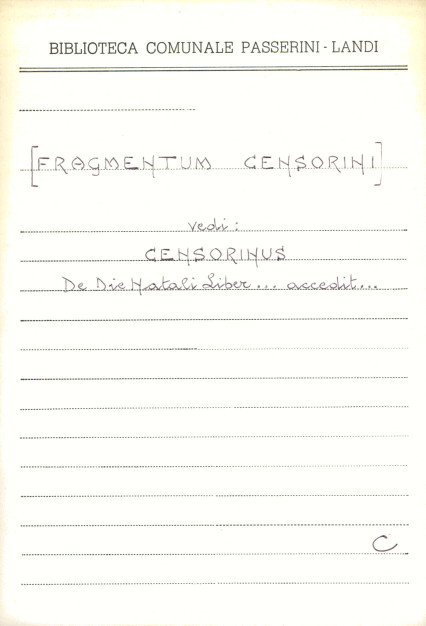 BIBLIOTECA COMUNALE PASSERINI - LANDI
[FRAGMENTUM CENSORINI]
vedi:
CENSORINUS
De Die Natali Liber ... accedit...
C